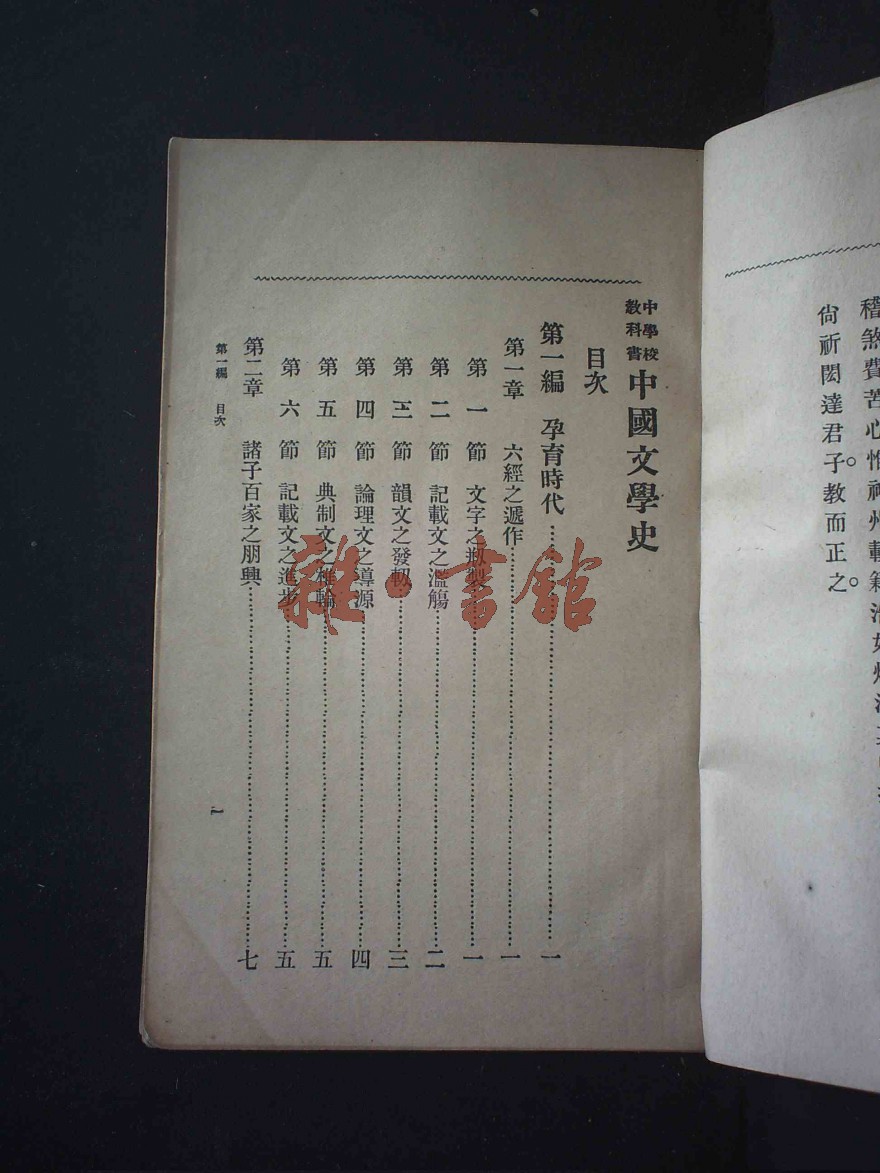 稽煞費苦心。惟神州載籍浩如
尙祈閎達君子教而正之。
中學校
教科書
中國文學史
目次
第一編 孕育時代……一
第一章 六經之遞作……一
第一節 文字之刱製……一
第二節 記載文之濫觴……二
第三節 韻文之發軔……三
第四節 論理文之導源……四
第五節 典制文之椎輪……五
第六節 記載文之進步……五
第二章 諸子百家之朋興……七
第一編 目次
一
雜·書館